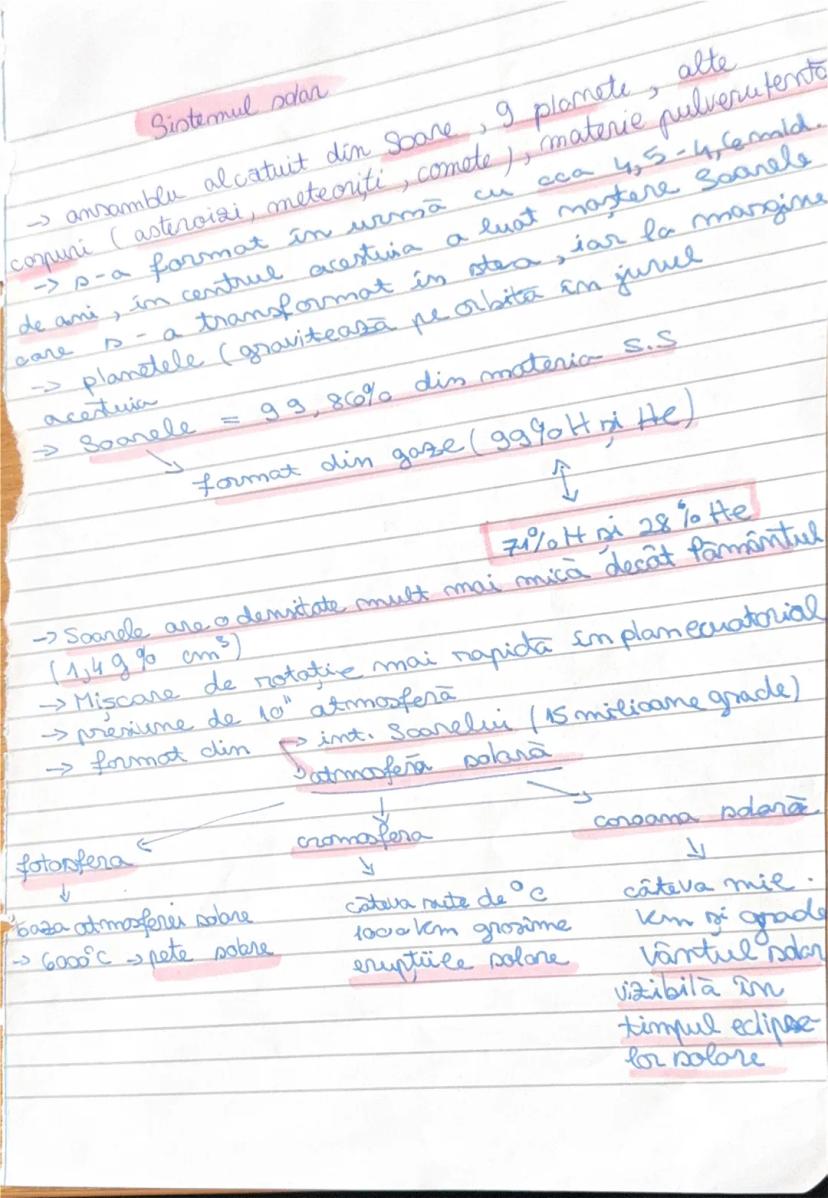 Sistemul solar
→ ansamblu alcătuit din Soare, 9 planete, alte
corpuri (asteroizi, meteoriți, comete), materie pulverulentă
→ s-a format în urmă cu cca 4,5-4,6 mld.
de ani, în centrul acestuia a luat naștere Soarele
care s-a transformat în stea, iar la margine
→ planetele (gravitează pe orbită în jurul
acestuia
→ Soarele = 99,86% din materia S.S
format din gaze (99% H și He)
71% H și 28% He
→ Soarele are o densitate mult mai mică decât Pământul
(1,49% cm³)
→ Mișcare de rotație mai rapidă în plan ecuatorial
→ presiune de 10" atmosferă
→ format din → int. Soarelui (15 milioane grade)
→ atmosferă solară
fotosfera cromosfera coroana solară
baza atmosferei solare câteva mite de °C câteva mie.
→ 6000°C → pete solare 1000 km grosime km și grade
erupțiile solare vântul solar
vizibilă în
timpul eclipse
lor solare